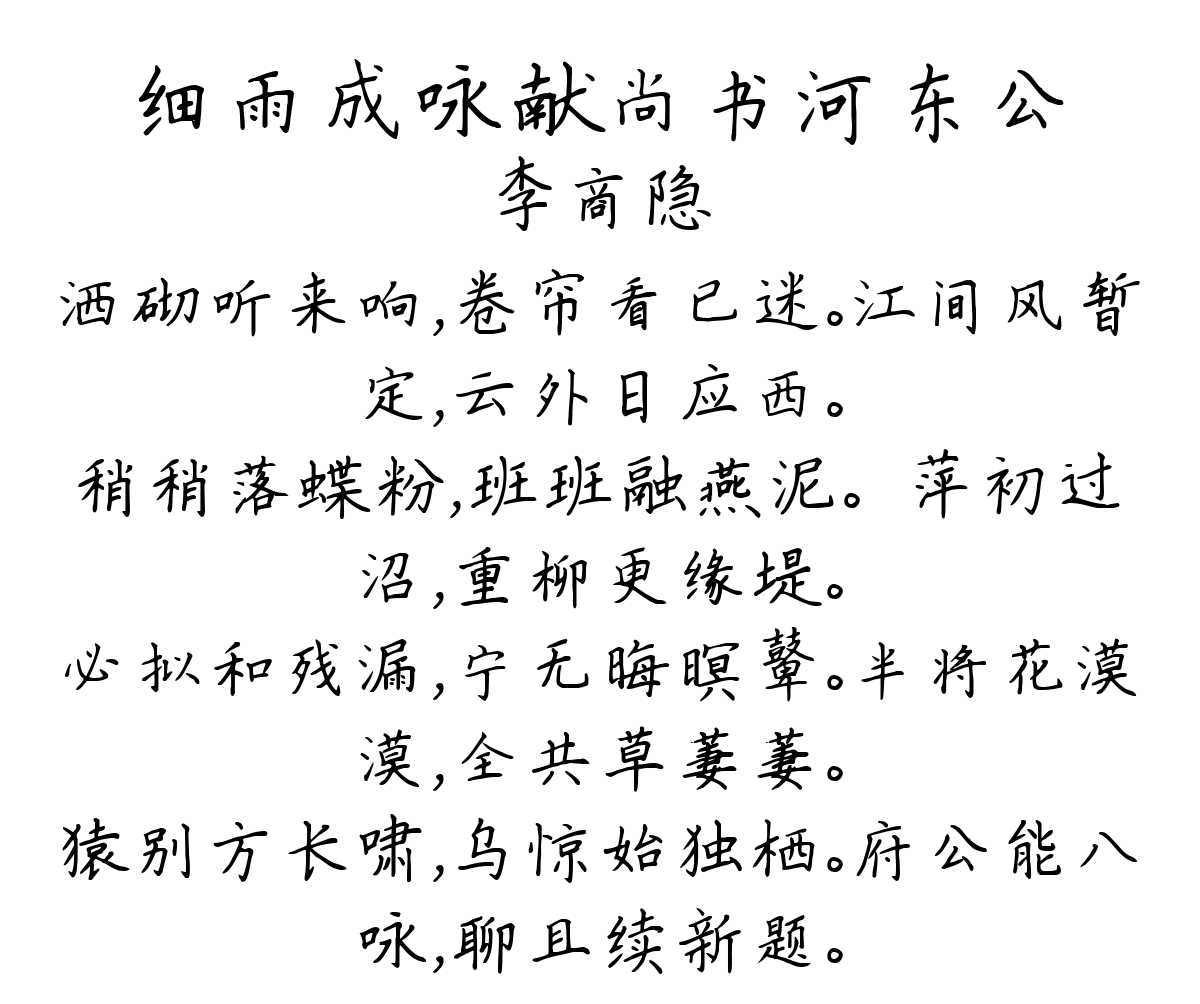 细雨成咏献尚书河东公
李商隐
洒砌听来响,卷帘看已迷。江间风暂
定,云外日应西。
稍稍落蝶粉,班班融燕泥。萍初过
沼,重柳更缘堤。
必拟和残漏,宁无晦暝鼙。半将花漠
漠,全共草萋萋。
猿别方长啸,乌惊始独栖。府公能八
咏,聊且续新题。